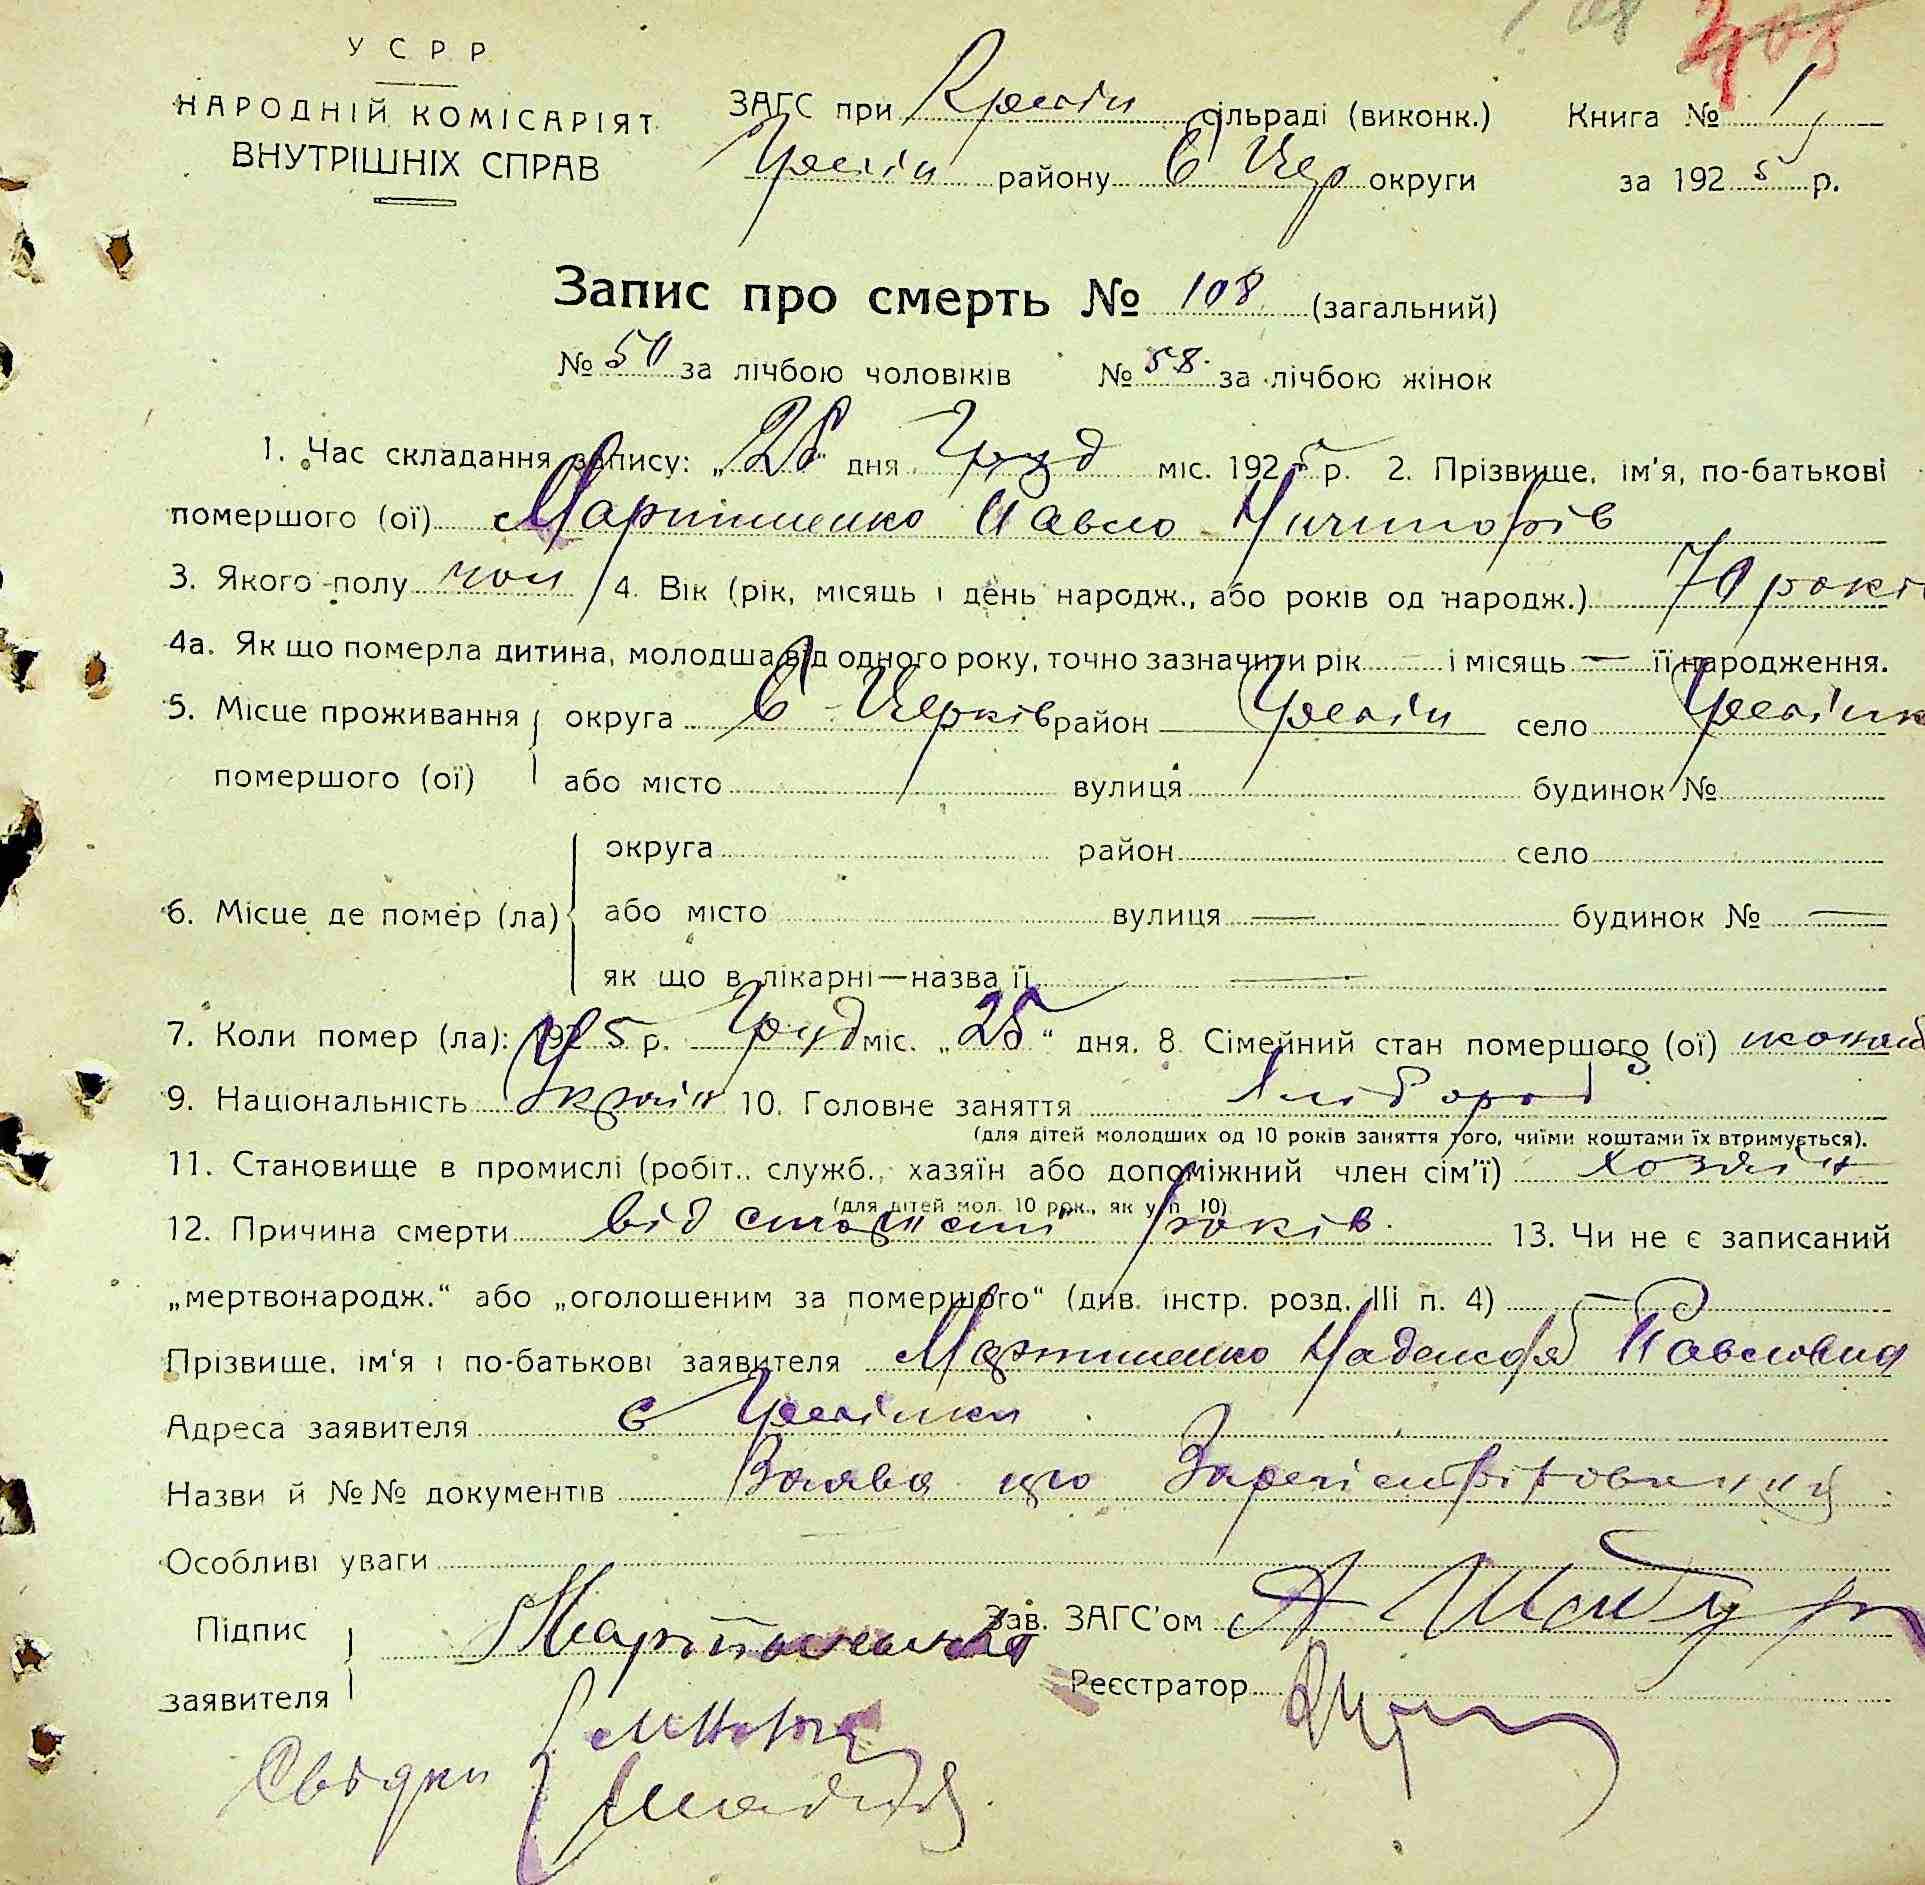 У С Р Р
НАРОДНІЙ КОМІСАРІЯТ
ВНУТРІШНІХ СПРАВ
ЗАГС при сільраді (виконк.) Книга № 1
району Б Чер округи за 1925 р.
Запис про смерть № 108 (загальний)
№ 50 за лічбою чоловіків № 58 за лічбою жінок
1. Час складання запису: „ “ дня Груд міс. 1925 р. 2. Прізвище, ім'я, по-батькові
помершого (ої) Мартиненко Павло Ничипорів
3. Якого полу чол 4. Вік (рік, місяць і день народж., або років од народж.) 70 років
4а. Як що померла дитина, молодша від одного року, точно зазначити рік — і місяць — її народження.
5. Місце проживання округа Б-Церків район село
помершого (ої) або місто вулиця будинок №
округа район село
6. Місце де помер (ла) або місто вулиця — будинок № —
як що в лікарні—назва її —
7. Коли помер (ла): 1925 р. Груд міс. „ “ дня. 8. Сімейний стан помершого (ої)
9. Національність Україн 10. Головне заняття Хлібороб
(для дітей молодших од 10 років заняття того, чиїми коштами їх втримується).
11. Становище в промислі (робіт., служб., хазяїн або допоміжний член сім'ї) хозяїн
(для дітей мол. 10 рок., як у п. 10)
12. Причина смерти від старости років. 13. Чи не є записаний
„мертвонародж.“ або „оголошеним за помершого“ (див. інстр. розд. III п. 4) —
Прізвище, ім'я і по-батькові заявителя Мартиненко Надежда Павловна
Адреса заявителя с
Назви й №№ документів Заява про
Особливі уваги
Підпис Зав. ЗАГС'ом
заявителя Реєстратор
Свідки